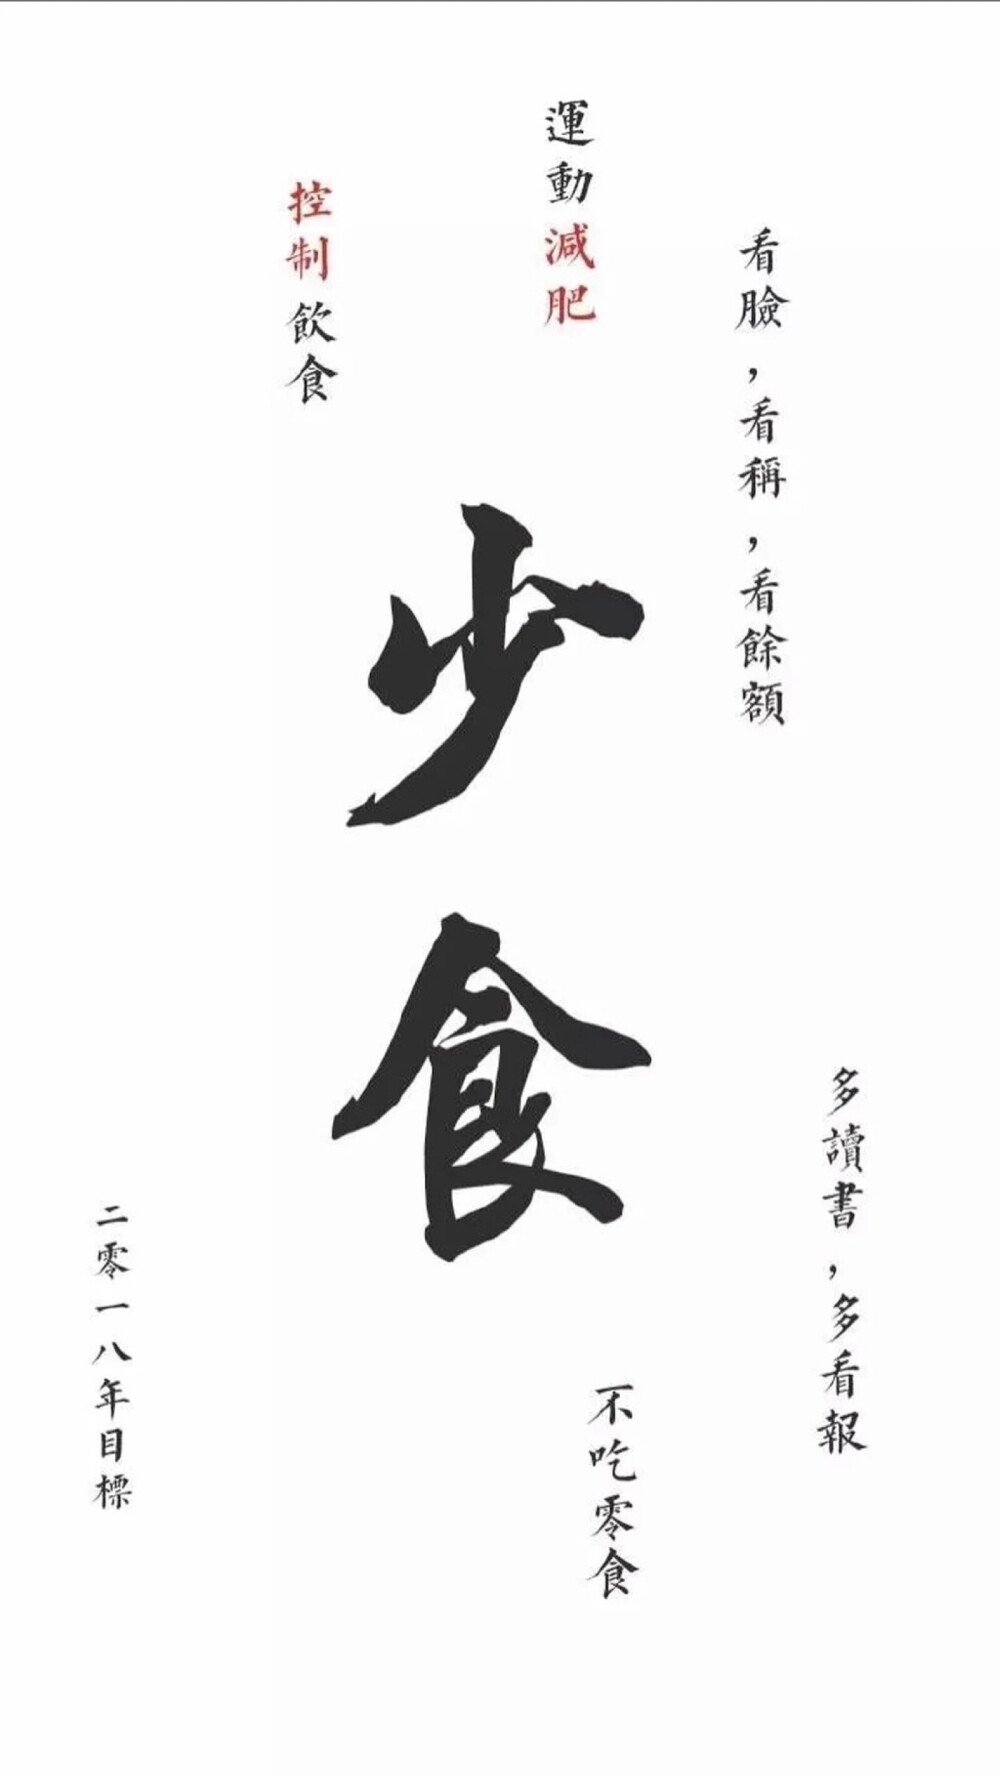 看臉，看稱，看餘額
運動減肥
控制飲食
少食
多讀書，多看報
不吃零食
二零一八年目標